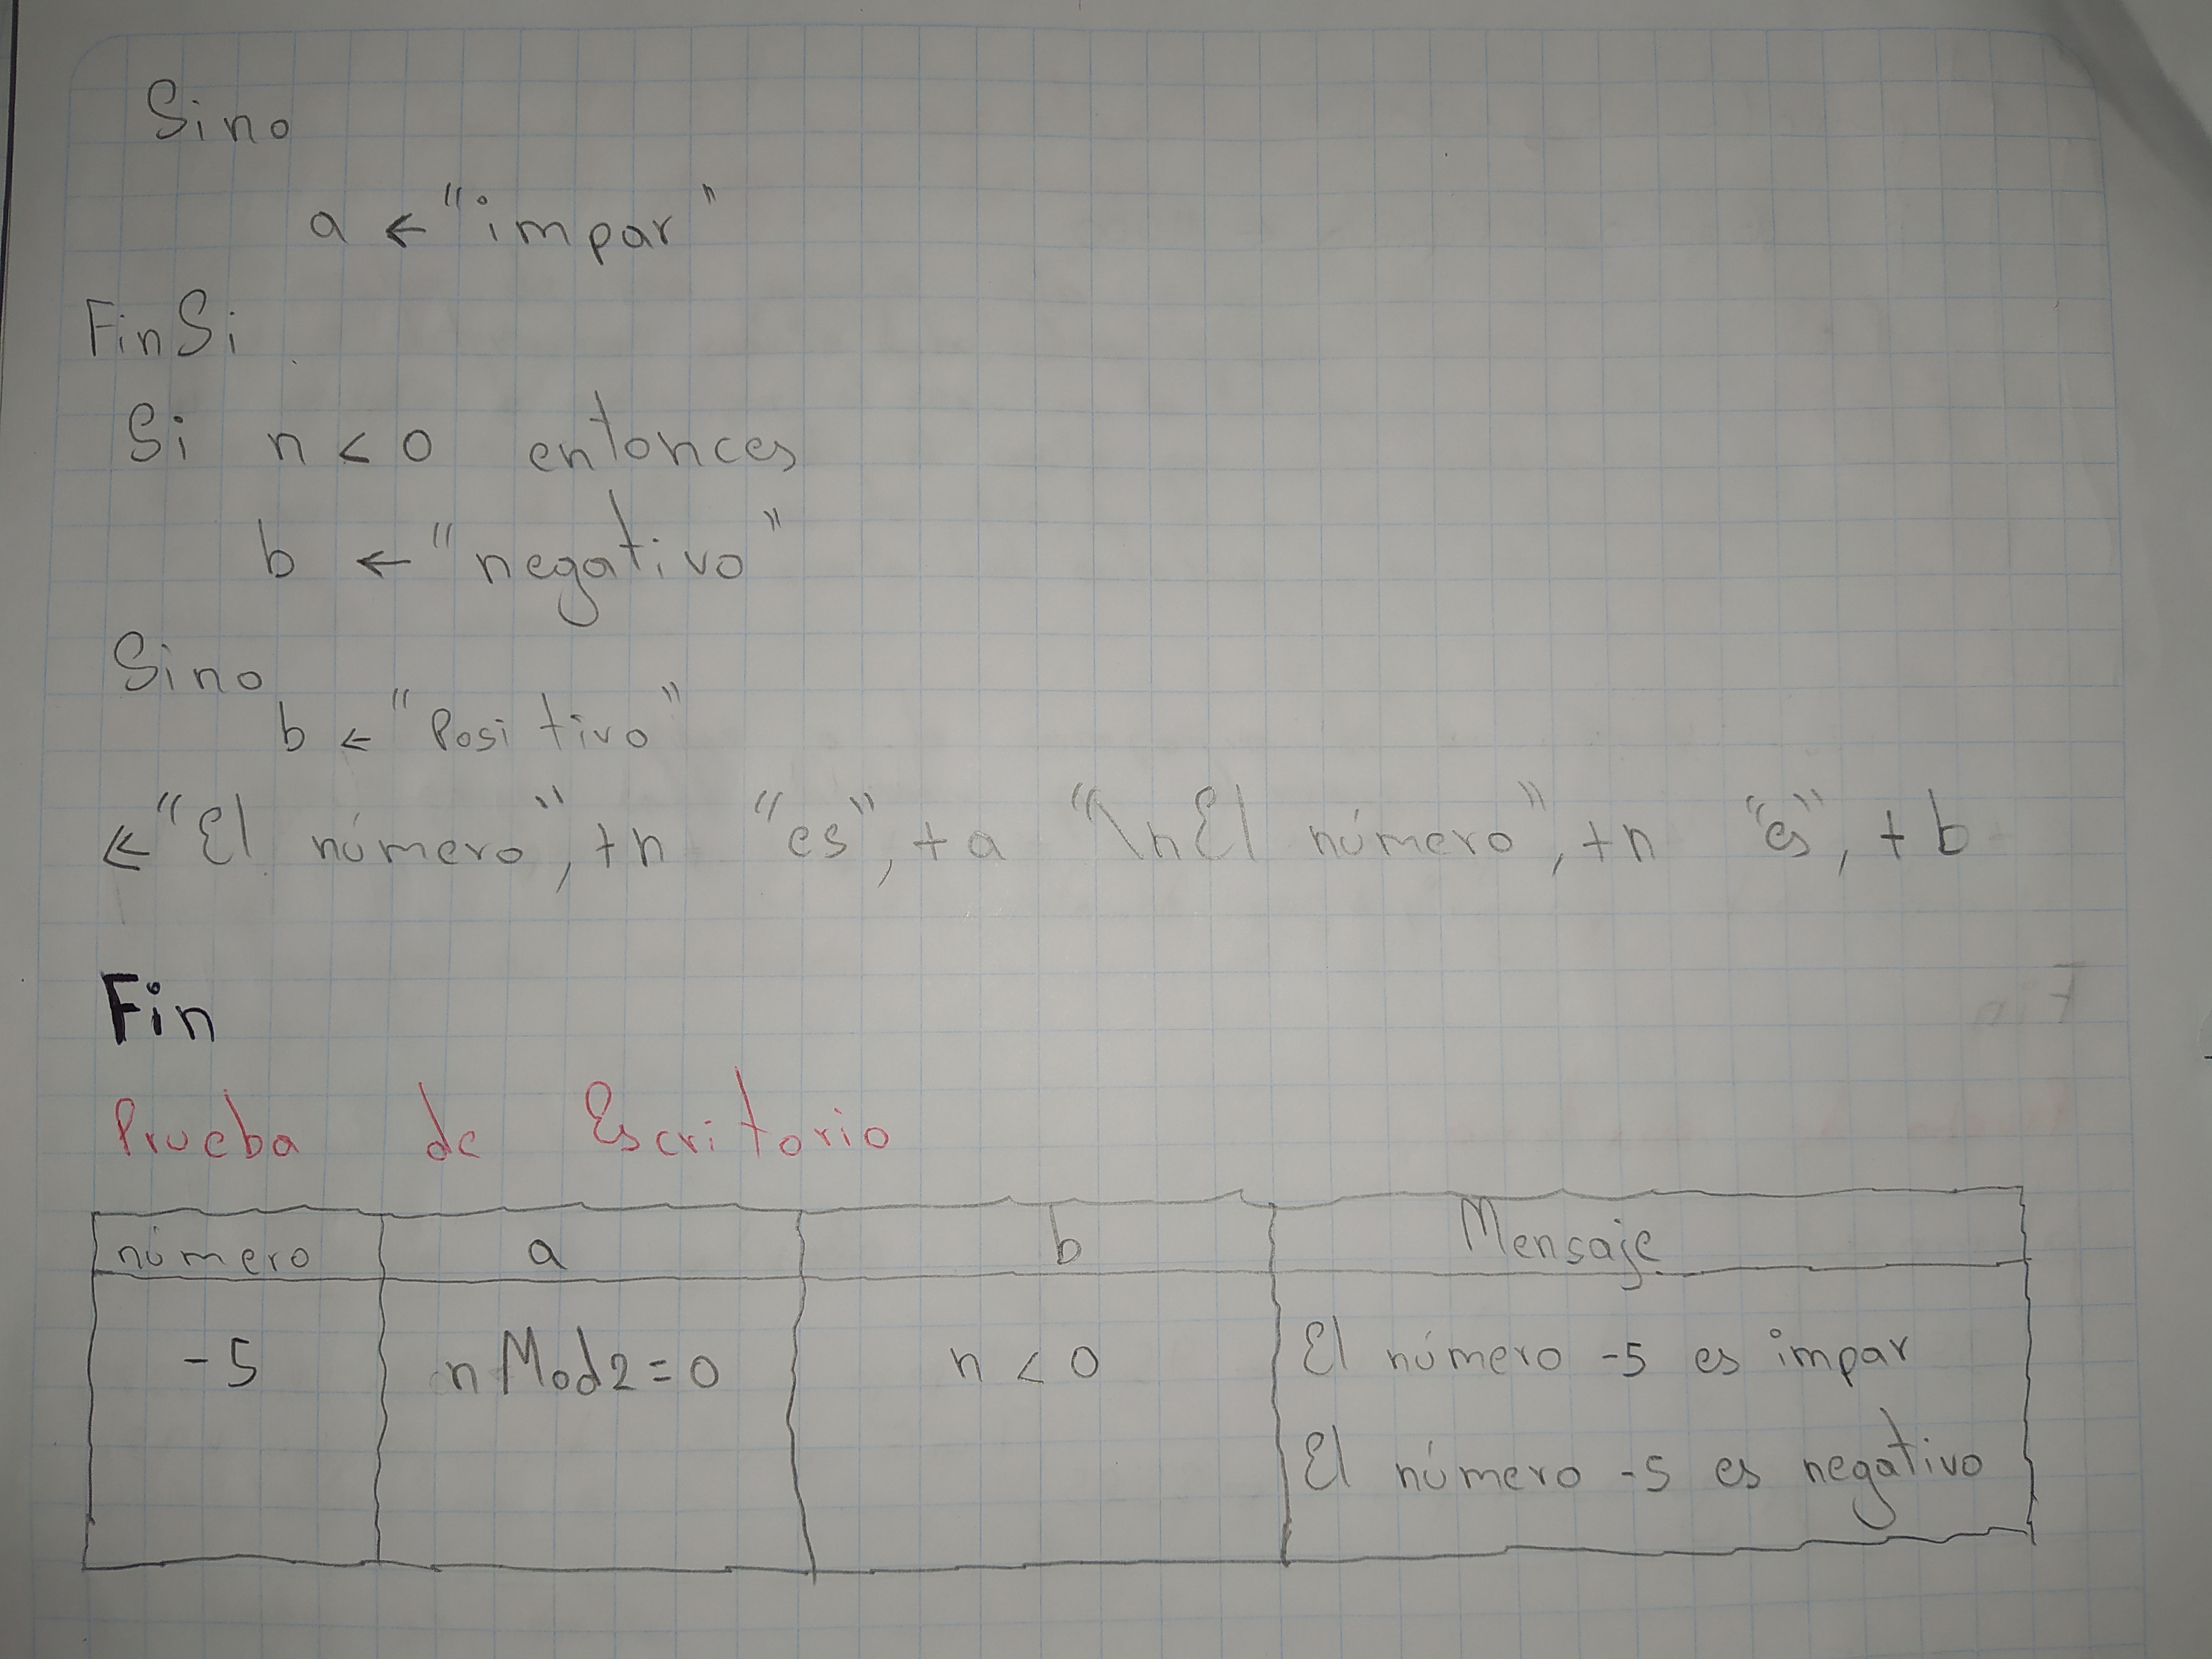 Sino
a ← "impar"
FinSi
Si n < 0 entonces
b ← "negativo"
Sino
b ← "Positivo"
← "El número", +n "es", +a "\nEl número", +n "es", +b
Fin
Prueba de Escritorio
número a b Mensaje
-5 n Mod2=0 n < 0 El número -5 es impar
El número -5 es negativo